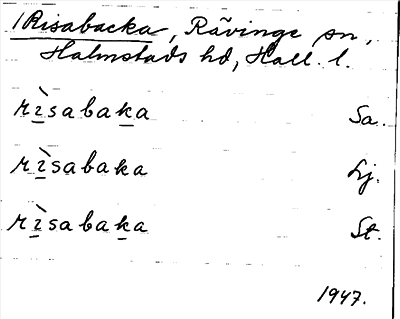 /Risabacka, Råvinge sn,
Halmstads hd, Hall. l.
rìsabaka Sa.
rìsabaka Lj.
rìsabaka St.
1947.